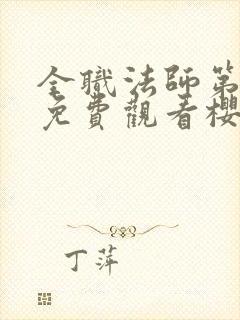 全職法師第
免費觀看櫻
丁萍